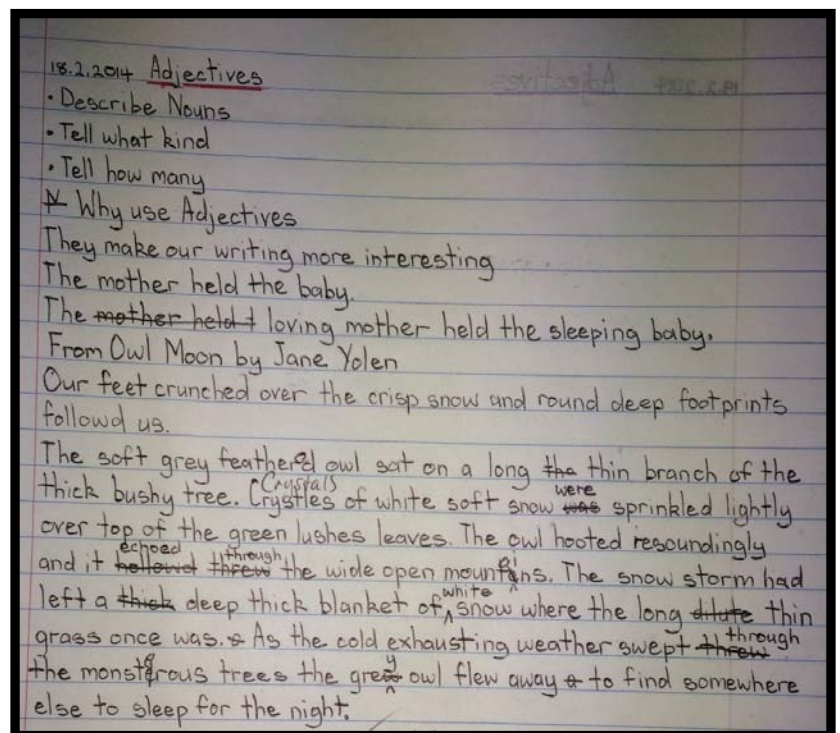 18.2.2014 Adjectives
• Describe Nouns
• Tell what kind
• Tell how many
Why use Adjectives
They make our writing more interesting
The mother held the baby.
The mother held t loving mother held the sleeping baby.
From Owl Moon by Jane Yolen
Our feet crunched over the crisp snow and round deep footprints
followd us.
The soft grey feathered owl sat on a long the thin branch of the
Crystals were
thick bushy tree. Crystles of white soft snow was sprinkled lightly
over top of the green lushes leaves. The owl hooted resoundingly
echoed through
and it hollowd threw the wide open mountains. The snow storm had
white
left a thick deep thick blanket of snow where the long dilute thin
through
grass once was. As the cold exhausting weather swept threw
the monsterous trees the grey owl flew away to find somewhere
else to sleep for the night.